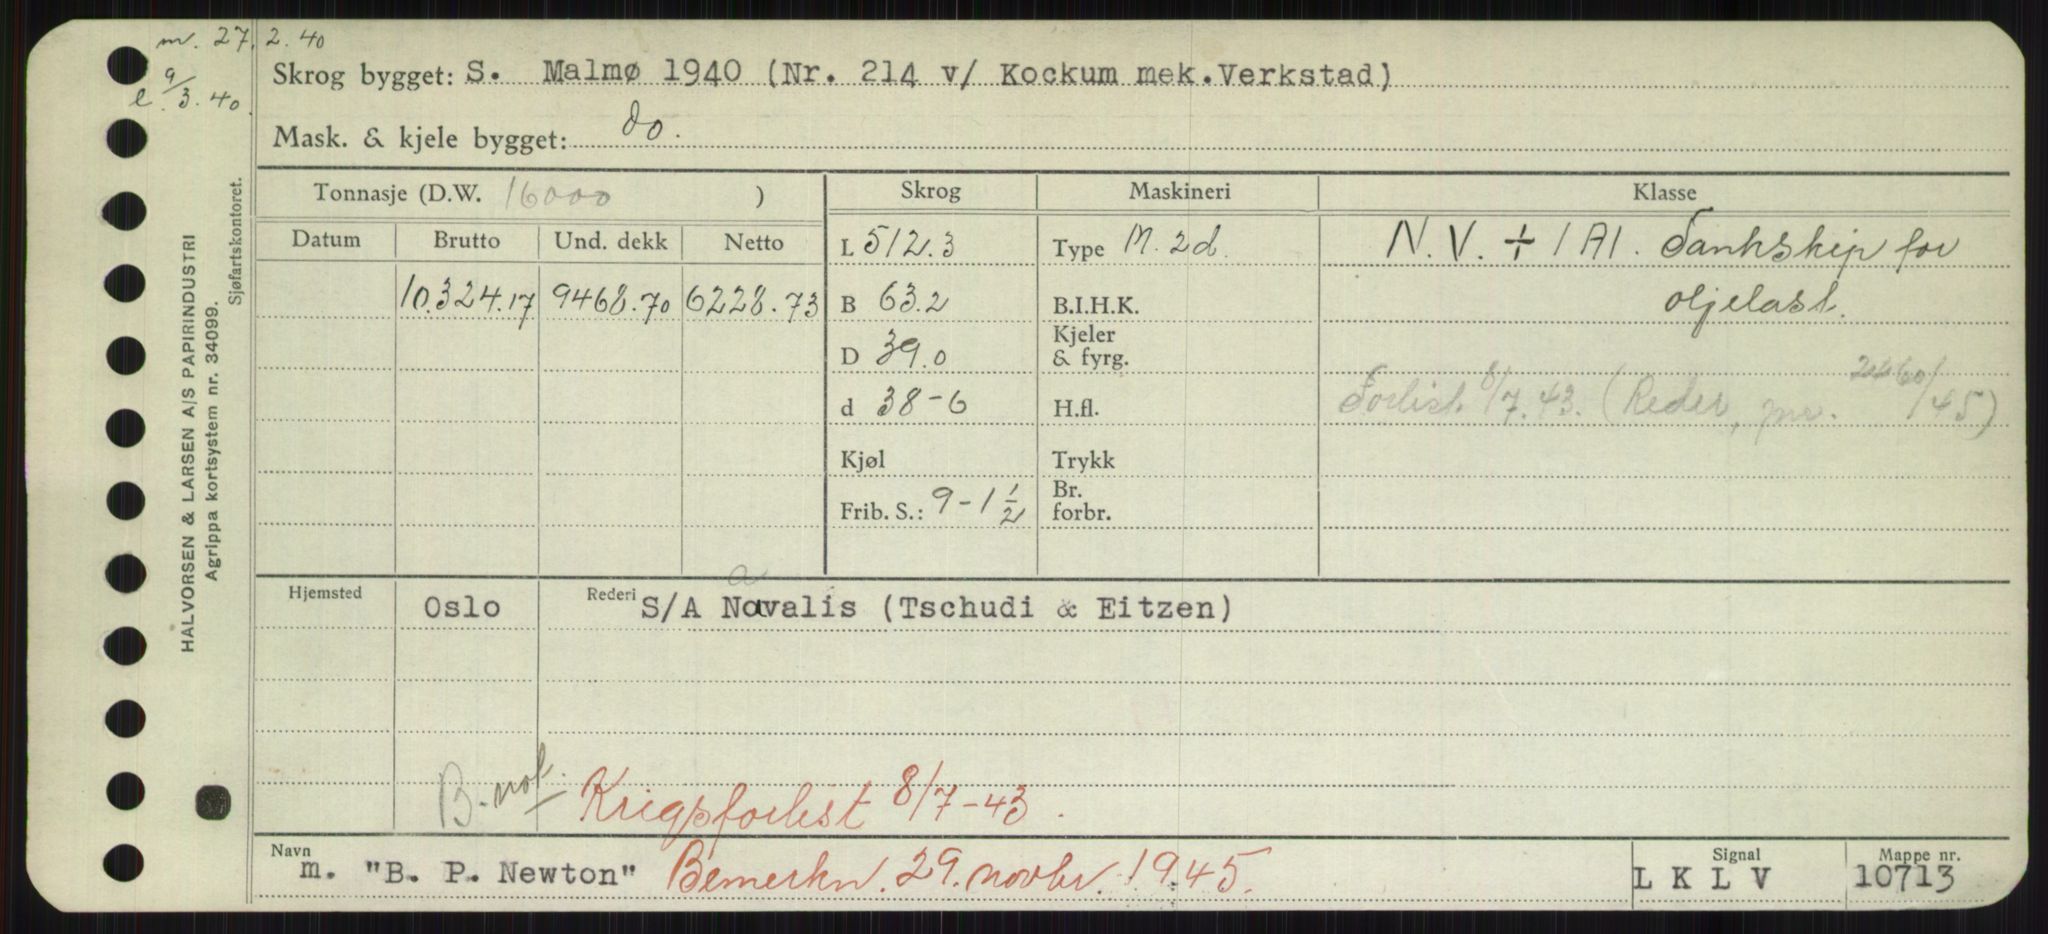 m. 27.2.40
e. 9/3.40.
HALVORSEN & LARSEN A/S PAPIRINDUSTRI
Agrippa kortsystem nr. 34099.
Sjøfartskontoret.
Skrog bygget: S. Malmø 1940 (Nr. 214 v/ Kockum mek.Verkstad)
Mask. & kjele bygget: do.
Tonnasje (D.W. 16000 ) Skrog Maskineri Klasse
Datum Brutto Und. dekk Netto L 512.3 Type M. 2d. N.V. + 1A1. Tankskip for
10.324.17 9468.70 6228.73 B 63.2 B.I.H.K. oljelast.
D 39.0 Kjeler & fyrg.
d 38-6 H.fl. Forlist 8/7.43. (Reder, jnr. 2460/45)
Kjøl Trykk
Frib. S.: 9-1 1/2 Br. forbr.
Hjemsted Oslo Rederi S/A Navalis (Tschudi & Eitzen)
B-not. Krigsforlist 8/7-43.
Navn m. "B. P. Newton" Bemerkn. 29. novbr. 1945. Signal L K L V Mappe nr. 10713